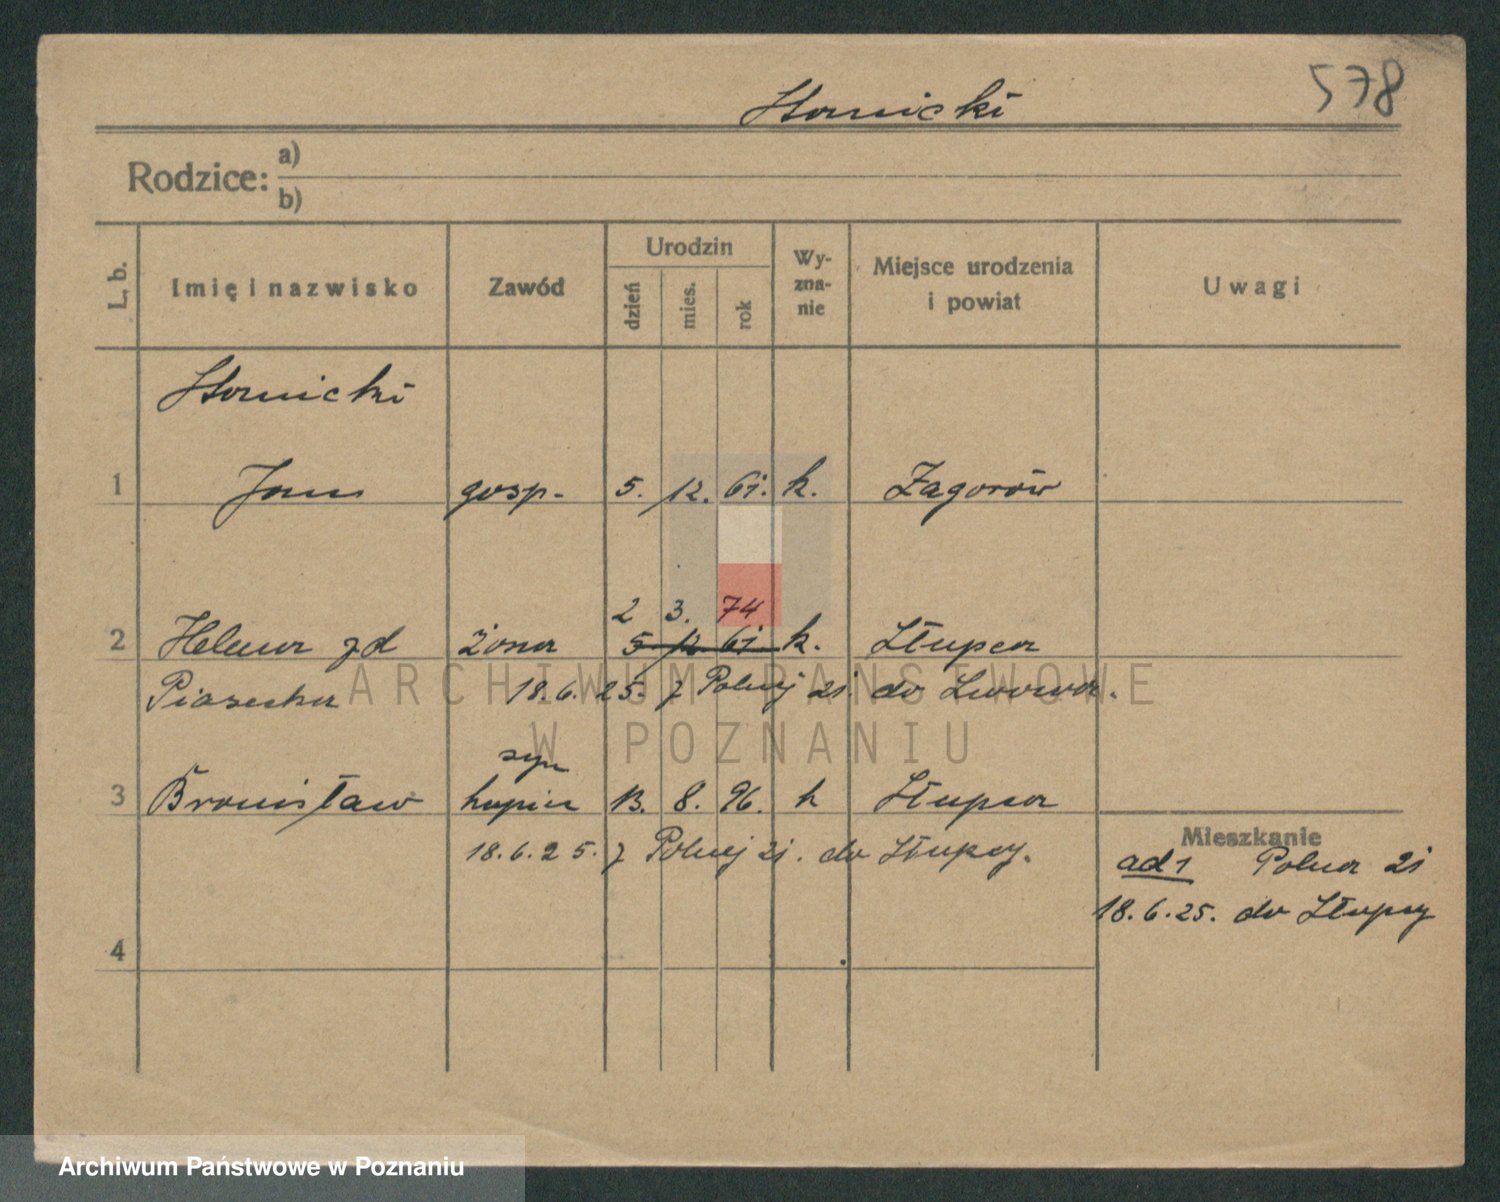 578
Słonicki
Rodzice: a)
b)
L. b. Imię i nazwisko Zawód Urodzin dzień mies. rok Wy-zna-nie Miejsce urodzenia i powiat Uwagi
Słonicki
1 Jan gosp. 5. 12. 61. k. Zagorów
2 3. 74
2 Helena zd żona 5 12 61 k. Słupca
Piasecka 18.6.25. z Polnej 21 do Lwowa.
syn
3 Bronisław kupiec 13. 8. 96. k Słupca
18.6.25. z Polnej 21. do Słupcy.
Mieszkanie
ad 1 Polna 21
18.6.25. do Słupcy
4
ARCHIWUM PAŃSTWOWE
W POZNANIU
Archiwum Państwowe w Poznaniu